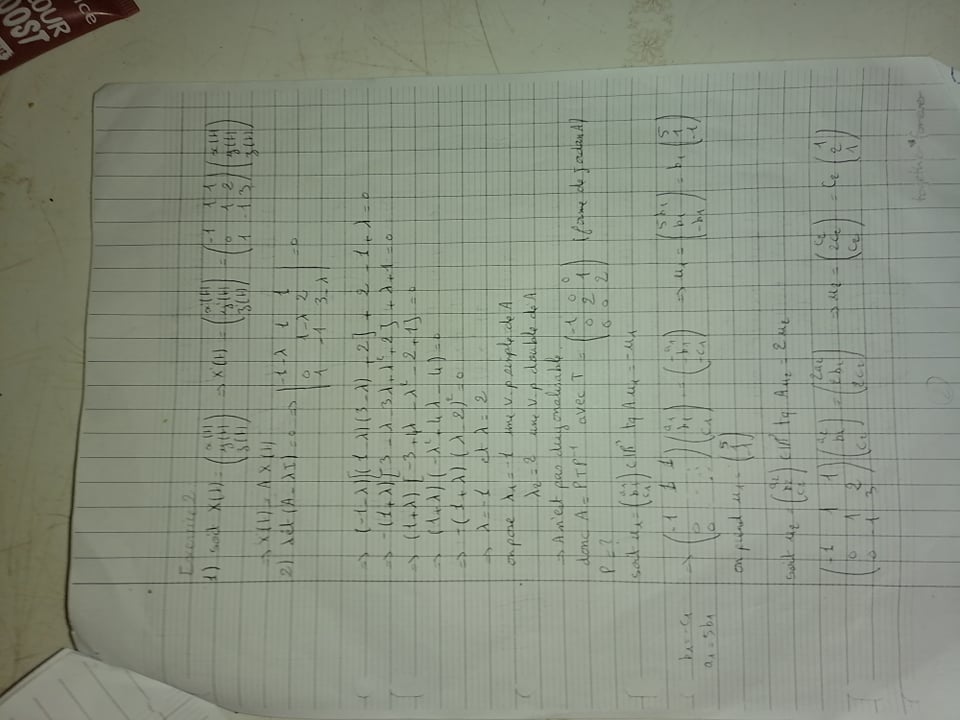 OUR
OOST
Exercice 2
1) soit X(t) = (x(t) y(t) z(t)) => X'(t) = (x'(t) y'(t) z'(t)) = (-1 1 1 / 0 1 2 / 1 -1 3) (x(t) y(t) z(t))
=> X'(t) = A X(t)
2) dét (A - λI) = 0 => | -1-λ 1 1 / 0 1-λ 2 / 1 -1 3-λ | = 0
=> (-1-λ)[(1-λ)(3-λ) + 2] + 2 - 1 + λ = 0
=> -(1+λ)[3 - λ - 3λ + λ² + 2] + λ + 1 = 0
=> (1+λ)[-3 + 4λ - λ² - 2 + 1] = 0
=> (1+λ)(-λ² + 4λ - 4) = 0
=> -(1+λ)(λ-2)² = 0
=> λ = -1 et λ = 2
on pose λ1 = -1 une v.p simple de A
λ2 = 2 une v.p double de A
=> A n'est pas diagonalisable
donc A = PTP⁻¹ avec T = (-1 0 0 / 0 2 1 / 0 0 2) (forme de Jordan A)
P = ?
soit u1 = (a1 b1 c1) ∈ IR³ tq Au1 = -u1
b1 = -c1
a1 = 5b1
=> (-1 1 1 / 0 . . / 0 . .) (a1 b1 c1) = (-a1 -b1 -c1) => u1 = (5b1 b1 -b1) = b1 (5 1 -1)
on prend u1 = (5 1 -1)
soit u2 = (a2 b2 c2) ∈ IR³ tq Au2 = 2u2
(-1 1 1 / 0 1 2 / 0 -1 3) (a2 b2 c2) = (2a2 2b2 2c2) => u2 = (c2 2c2 c2) = c2 (1 2 1)
together forever